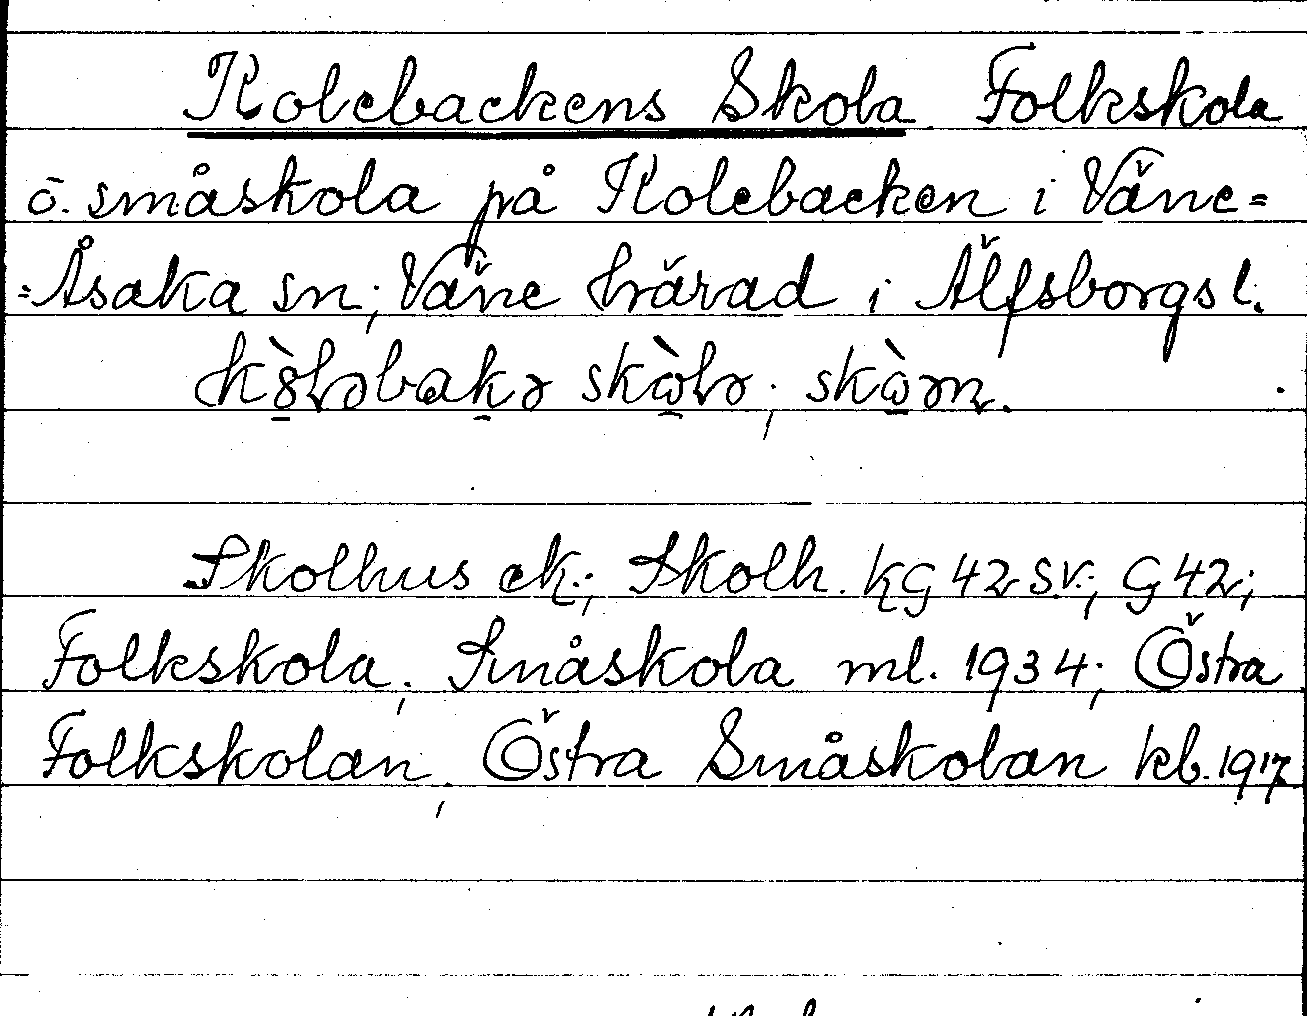 Kolebackens Skola Folkskola
o. småskola på Kolebacken i Väne=
=Åsaka sn; Väne härad i Älfsborgs l.
skola; 
Skolhus ek.; Skolh. KG 42 SV.; G 42;
Folkskola; Småskola ml. 1934; Östra
Folkskolan; Östra Småskolan kb. 1917